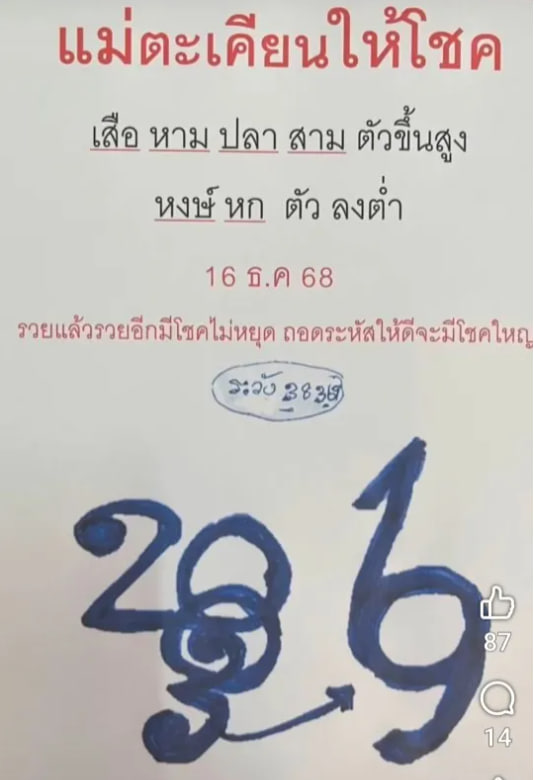 แม่ตะเคียนให้โชค
เสือ หาม ปลา สาม ตัวขึ้นสูง
หงษ์ หก ตัว ลงต่ำ
16 ธ.ค 68
รวยแล้วรวยอีกมีโชคไม่หยุด ถอดระหัสให้ดีจะมีโชคใหญ
ระวัง
87
14